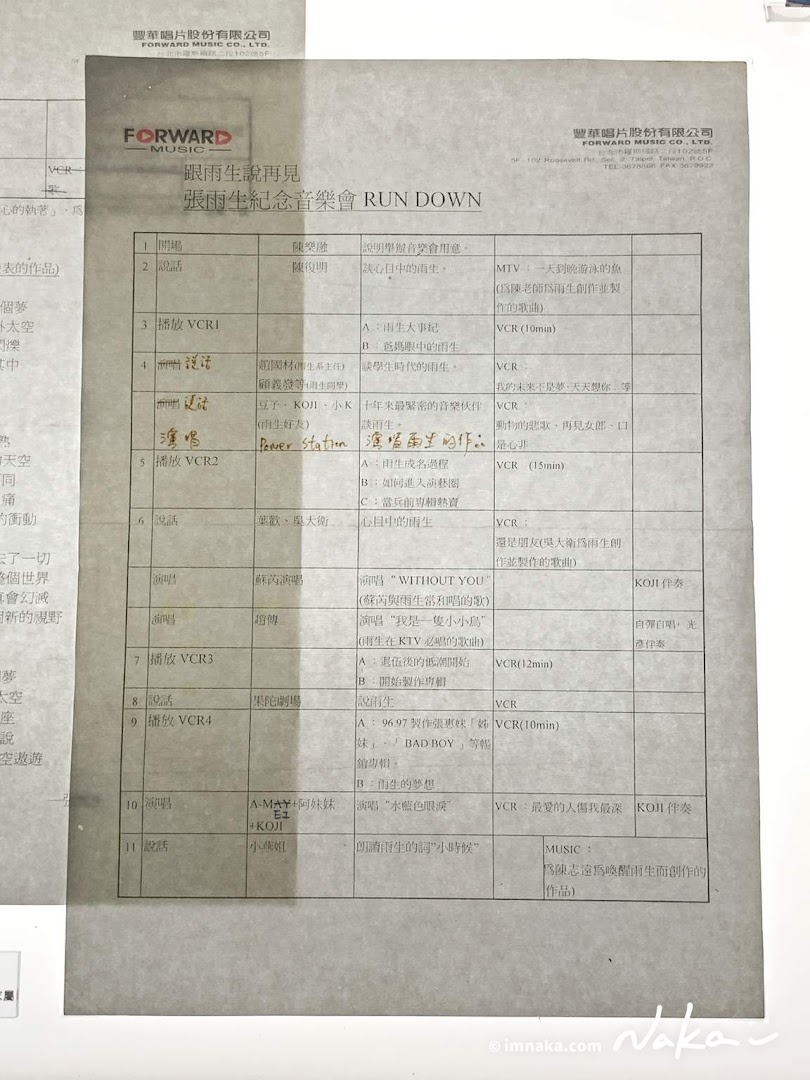 豐華唱片股份有限公司
FORWARD MUSIC CO., LTD.
FORWARD
MUSIC
豐華唱片股份有限公司
FORWARD MUSIC CO., LTD.
台北市羅斯福路二段102號5F
5F, 102 Roosevelt Rd., Sec. 2, Taipei, Taiwan, R.O.C.
跟雨生說再見
張雨生紀念音樂會 RUN DOWN
1 開場 陳樂融 說明舉辦音樂會用意。
2 說話 陳復明 談心目中的雨生。 MTV：一天到晚游泳的魚
(為陳老師為雨生創作並製
作的歌曲)
3 播放 VCR1 A：雨生大事紀 VCR (10min)
B：爸媽眼中的雨生
4 演唱 說話 趙國材(雨生系主任) 談學生時代的雨生。 VCR：
顧義發等(雨生同學) 我的未來不是夢、天天想你…等
演唱 說話 豆子、KOJI、小K 十年來最緊密的音樂伙伴 VCR：
(雨生好友) 談雨生。 動物的悲歌、再見女郎、口
演唱 Power Station 演唱雨生的作品 是心非
5 播放 VCR2 A：雨生成名過程 VCR (15min)
B：如何進入演藝圈
C：當兵前專輯熱賣
6 說話 葉歡、吳大衛 心目中的雨生 VCR：
還是朋友(吳大衛為雨生創
作並製作的歌曲)
演唱 蘇芮演唱 演唱“WITHOUT YOU” KOJI 伴奏
(蘇芮與雨生常和唱的歌)
演唱 趙傳 演唱“我是一隻小小鳥” 自彈自唱，光
(雨生在 KTV 必唱的歌曲) 彥伴奏
7 播放 VCR3 A：退伍後的低潮開始 VCR(12min)
B：開始製作專輯
8 說話 果陀劇場 說雨生 VCR
9 播放 VCR4 A：96.97 製作張惠妹「姊 VCR(10min)
妹」、「BAD BOY」等暢
銷專輯。
B：雨生的夢想
10 演唱 A-MAY+阿妹妹 演唱“水藍色眼淚” VCR：最愛的人傷我最深 KOJI 伴奏
EI
+KOJI
11 說話 小燕姐 朗讀雨生的詞“小時候” MUSIC：
為陳志遠為喚醒雨生而創作的
作品)
VCR：
心的執著」、為
表的作品)
個夢
外太空
其中
天空
痛
的衝動
去了一切
整個世界
真會幻滅
新的視野
夢
太空
座
說
空遨遊
家屬
© imnaka.com
Naka